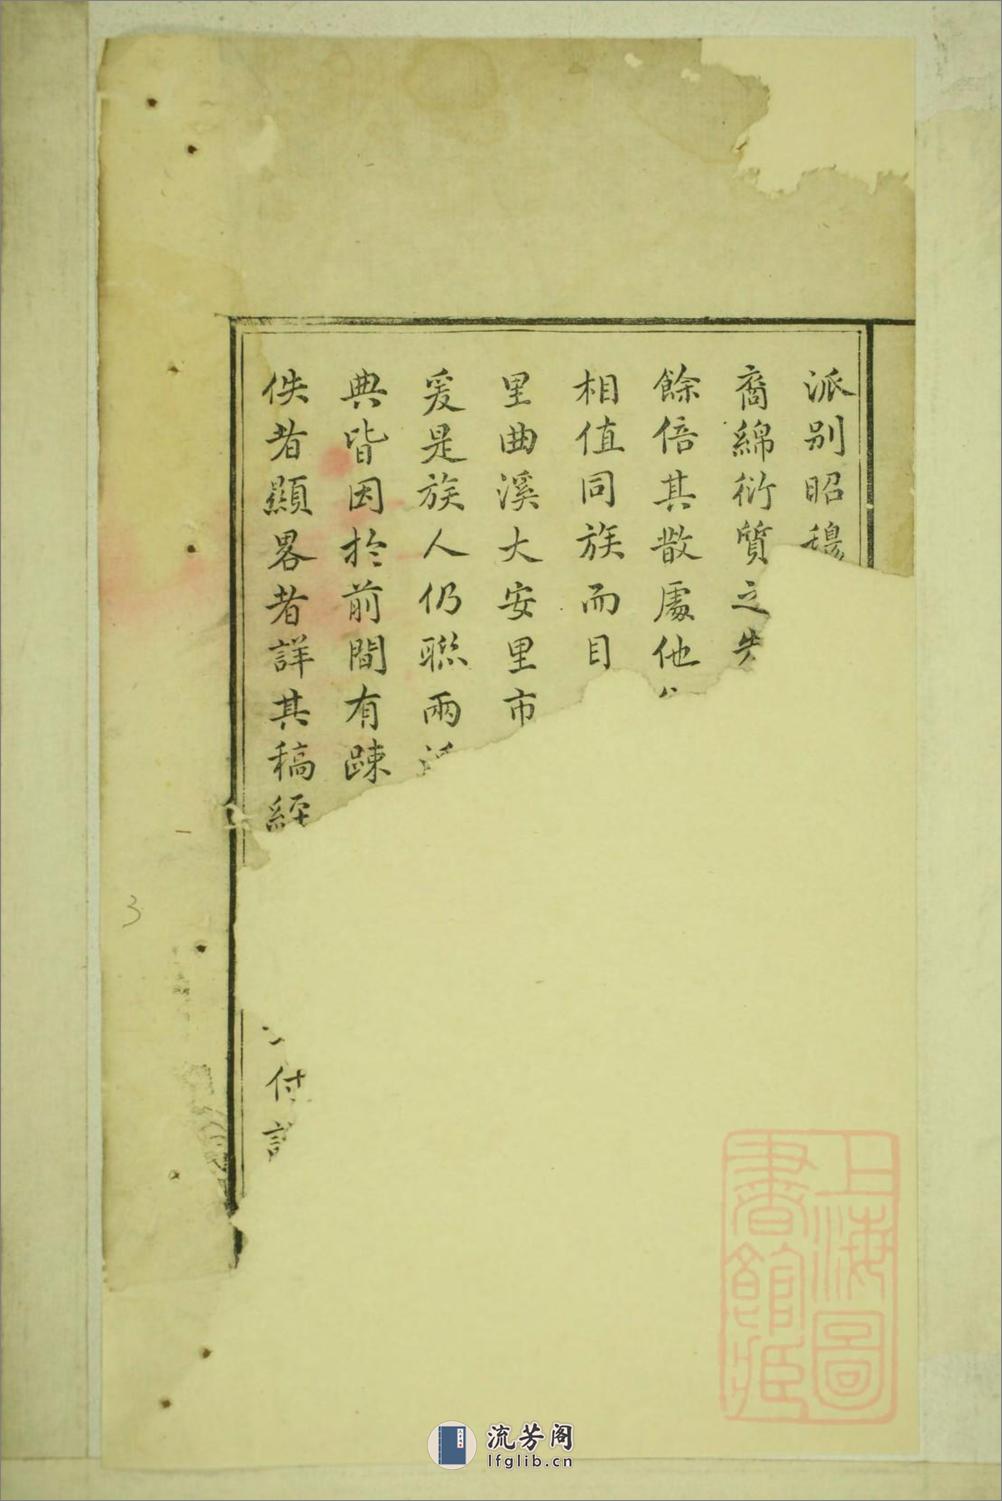 派别昭穆
裔綿衍質之失
餘倍其散處他
相值同族而目
里曲溪大安里市
爰是族人仍聯兩派
典皆因於前間有踈
佚者顯畧者詳其稿經
付
上海圖
書館藏
3
流芳阁
lfglib.cn